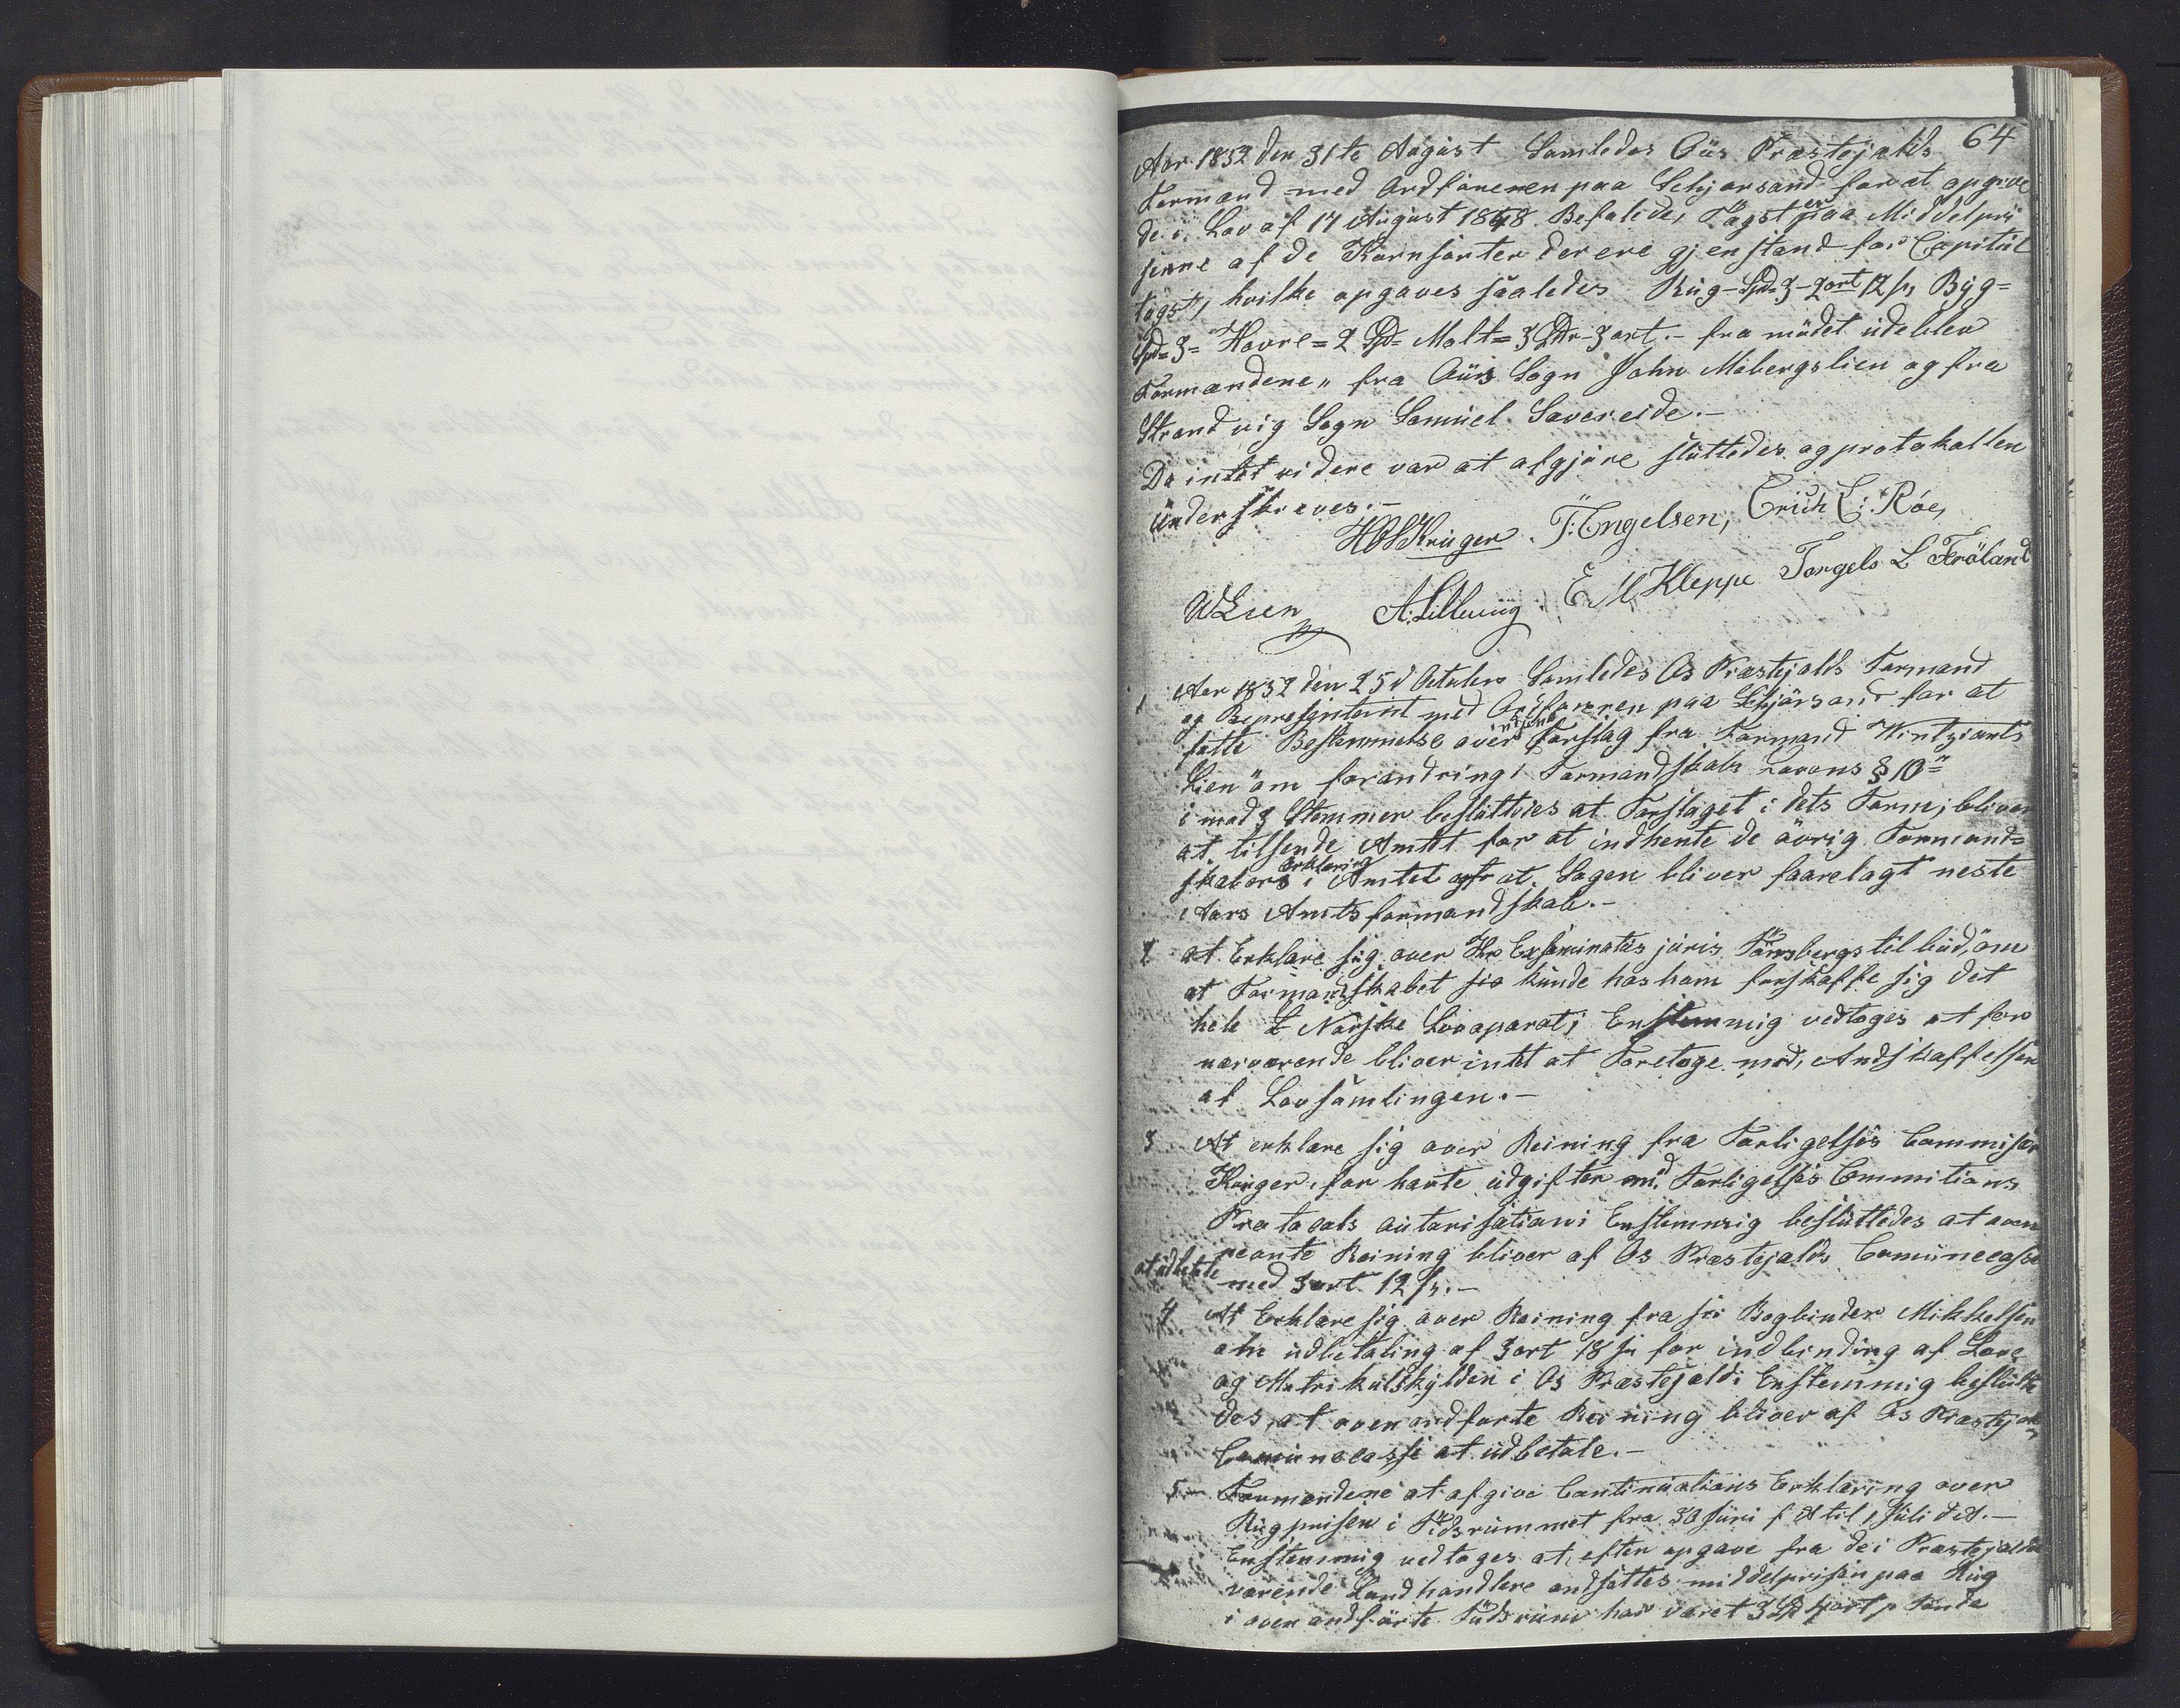 64
Aar 1852 den 31te August Samledes Ous Præstejalds
Formænd med Ordføreren paa Schjørsand for at opgive
de i Lov af 17 August 1848 Befalede, Tagst er paa Middelpri
serne af de Kornsorter der ere gjenstand for Capitul
tagst, hvilke opgaves saaledes Rug - Spd 3 - 2 ort 12 s, Byg =
Spd = 3 = Havre = 2 Spd = Malt = 3 Spdr - 3 ort. - fra mødet udeblev
Formændene fra Ous Sogn John Mobergslien og fra
Strandvig Sogn Samuel Sævereide. -
Da intet videre var at afgjøre sluttedes og protokollen
underskreves. -
HOS Krüger. T: Engelsen, Erich C: Røe,
W Lien A. Lillevüg. E M Kleppe Torgels L Frøland
1 Aar 1852 den 25d Octuber Samledes Os Præstejalds Formænd
og Representerent med Ordføreren paa Schjørsand for at
fatte Bestemmelse over Forslag fra Formand Wintziants
Lien om forandring i Formandskabs Lovens § 10de
imod 3 Stemmer besluttedes at Forslaget i dets Form, bliver
at tilsende Amtet for at indhente de øvrig Formand=
skabers Erklæring i Amtet at Sagen bliver foorelagt neste
Aars Amtsformandskab. -
2 at Erklære sig over Hr Exsaminatus juris Tønsbergs tilbud om
at Formandskabet kunde hos ham forskaffe sig det
hele Norske Lovaparat; Enstemmig vedtoges at for
nærværende bliver intet at Foretage med, Andskaffelsen
af Lovsamlingen. -
3 At erklære sig over Reining fra Forligelses Commisær
Krüger, for havte udgifter md Forligelses Commitions
Protocols autorisation; Enstemmig besluttedes at oven
neonte Reining bliver af Os Præstejalds Comunecasse
at udbetale med 3 ort 12 s. -
4 At Erklære sig over Reining fra Bogbinder Mikkelsen
om udbetaling af 3 ort 18 s for indbinding af Love
og Matrikulskylden i Os Præstejald; Enstemmig beslutte
des, at ovenandførte Reining bliver af Os Præstejalds
Comunecasse at udbetale. -
5 Formændene at afgive Continuations Erklæring over
Rugprisen i Tidsrummet fra 30 Juni f A til 1 Juli d A. -
Enstemmig vedtoges at, efter opgave fra de i Præstejaldet
værende Landhandlere andsettes middelprisen paa Rug
i ovenandførte Tidsrum har været 3 Spd 4 ort p Tønde